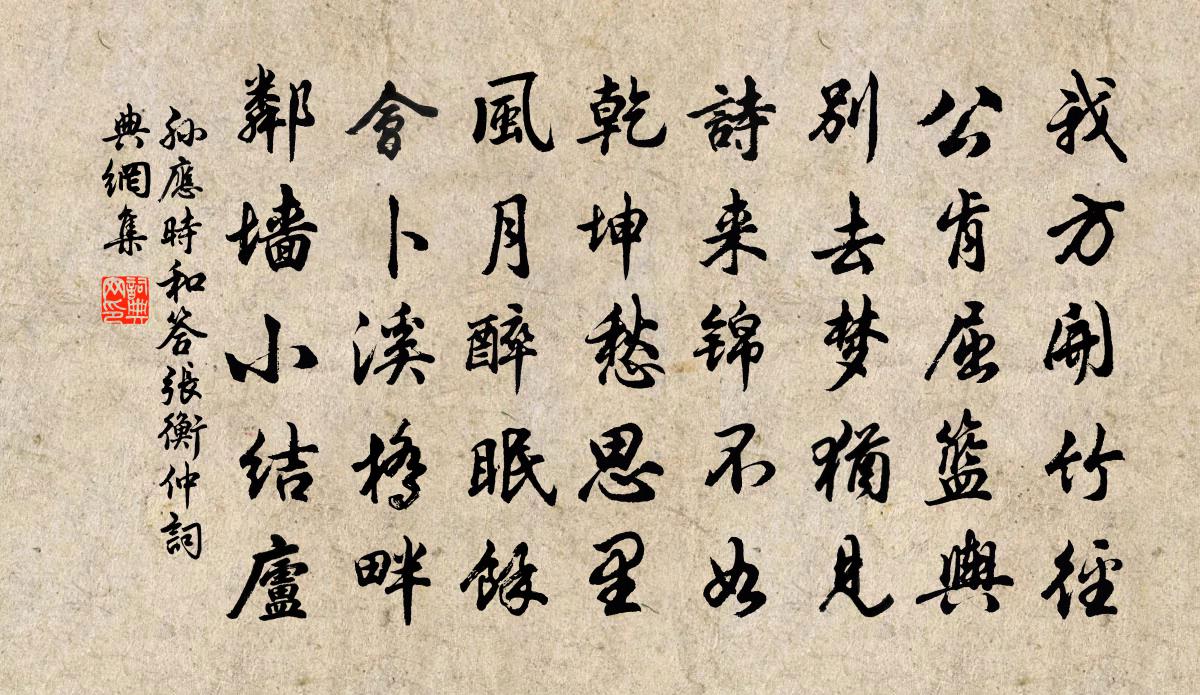 我方開竹徑
公肯屈籃輿
別去梦猶見
詩来锦不如
乾坤愁思里
風月醉眠餘
會卜溪橋畔
鄰墙小结廬
孙應時和答張衡仲詞
典網集
詞典
网印